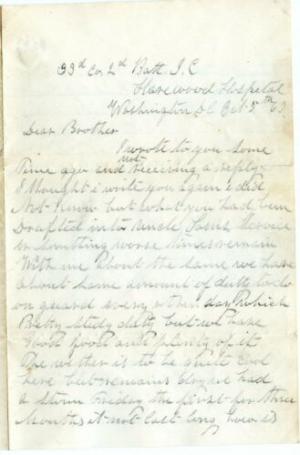 33d Co 2d Batt I.C
Harewood Hospital
Washington D.C Oct 5th 63
Dear Brother
I wrote to you some
time ago and not receiving a reply
I thought I write you again I did
not know but what you had been
Drafted into Uncle Sams Service
or something worse
With me about the same we have
about same amount of duty to do
on guard every other day which
is
Good food and plenty of it
The wether is to be quite cool
here but remains dry we had
a storm Friday the first for three
Months it not last long how is